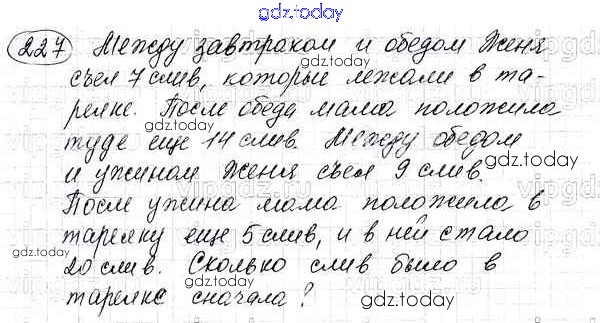 gdz.today
227 Между завтраком и обедом Женя
съел 7 слив, которые лежали в та-
gdz.today
релке. После обеда мама положила
туда еще 14 слив. Между обедом
gdz.today
gdz.today
и ужином Женя съел 9 слив.
После ужина мама положила в
тарелку еще 5 слив, и в ней стало
gdz.today
gdz.today
20 слив. Сколько слив было в
тарелке сначала?
gdz.today